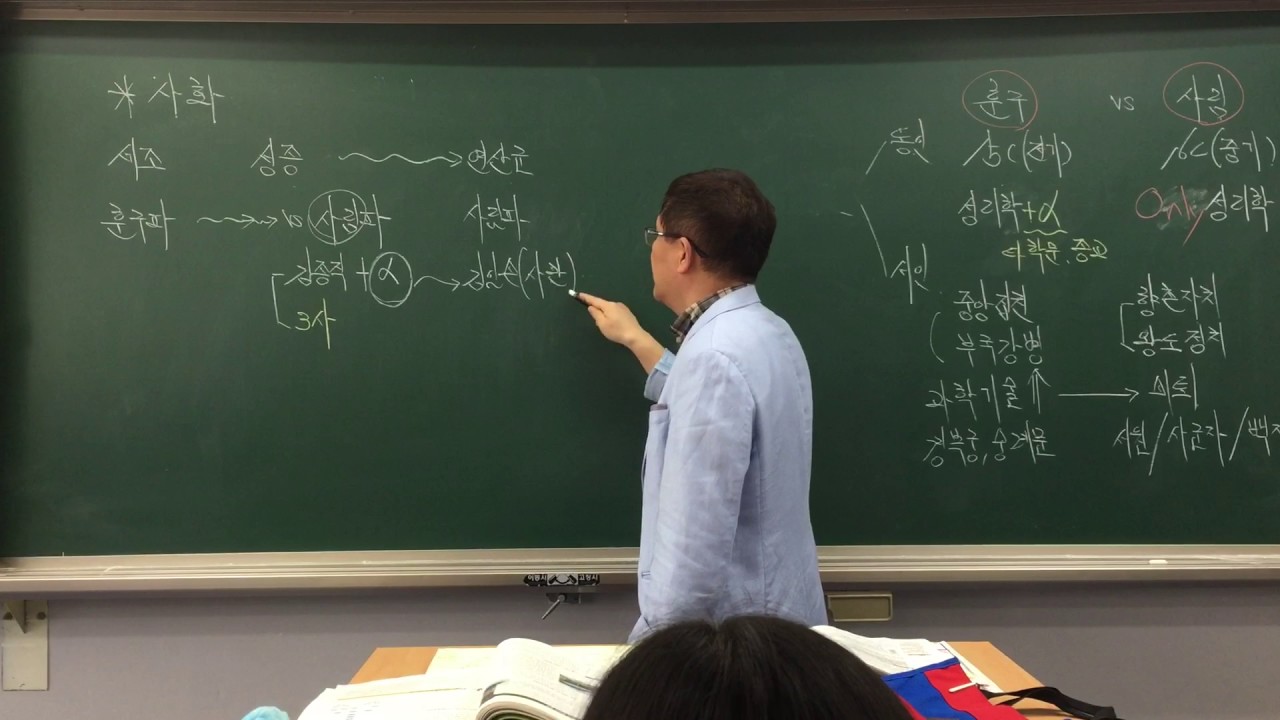 * 사화
세조 성종 → 연산군
훈구파 → vs 사림파 사림파
김종직 + α → 김일손(사관)
3사
훈구 vs 사림
15C(전기) 16C(중기)
성리학+α Only 성리학
타학문 중요
동인
서인
중앙집권 향촌자치
부국강병 왕도정치
과학기술 ↑ → 쇠퇴
경복궁, 숭례문 서원/사군자/백자
이동시 고정시